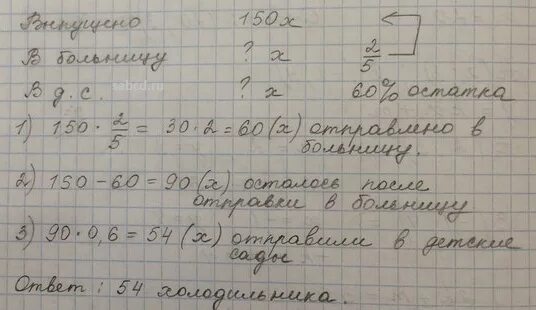 Выпущено 150х
В больницу ? х 2/5
sabed.ru
В д.с. ? х 60% остатка
1) 150 · 2/5 = 30 · 2 = 60 (х) отправлено в
больницу.
2) 150 – 60 = 90 (х) осталось после
отправки в больницу
3) 90 · 0,6 = 54 (х) отправили в детские
сады
Ответ : 54 холодильника.